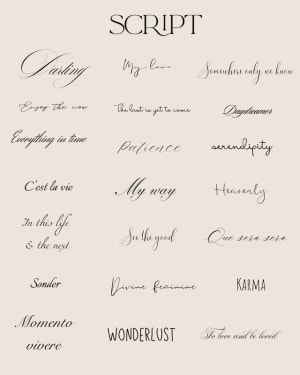 SCRIPT
Darling
My love
Somewhere only we know
Enjoy the now
The best is yet to come
Daydreamer
Everything in time
Patience
serendipity
C'est la vie
My way
Heavenly
In this life
& the next
See the good
Que sera sera
Sonder
Divine feminine
KARMA
Momento
vivere
WONDERLUST
To love and be loved